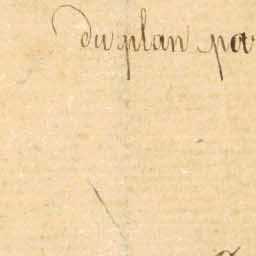 du plan pa